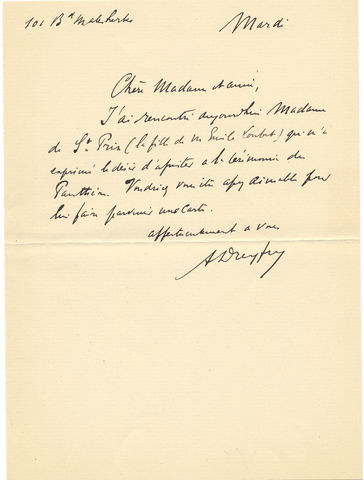 101 Bd Malesherbes
Mardi
Chère Madame et amie,
J'ai rencontré aujourd'hui Madame
de St Prix (la fille de M Emile Loubet) qui m'a
exprimé le désir d'assister à la cérémonie du
Panthéon. Voudriez vous être assez aimable pour
lui faire parvenir une carte.
affectueusement à vous
ADreyfus